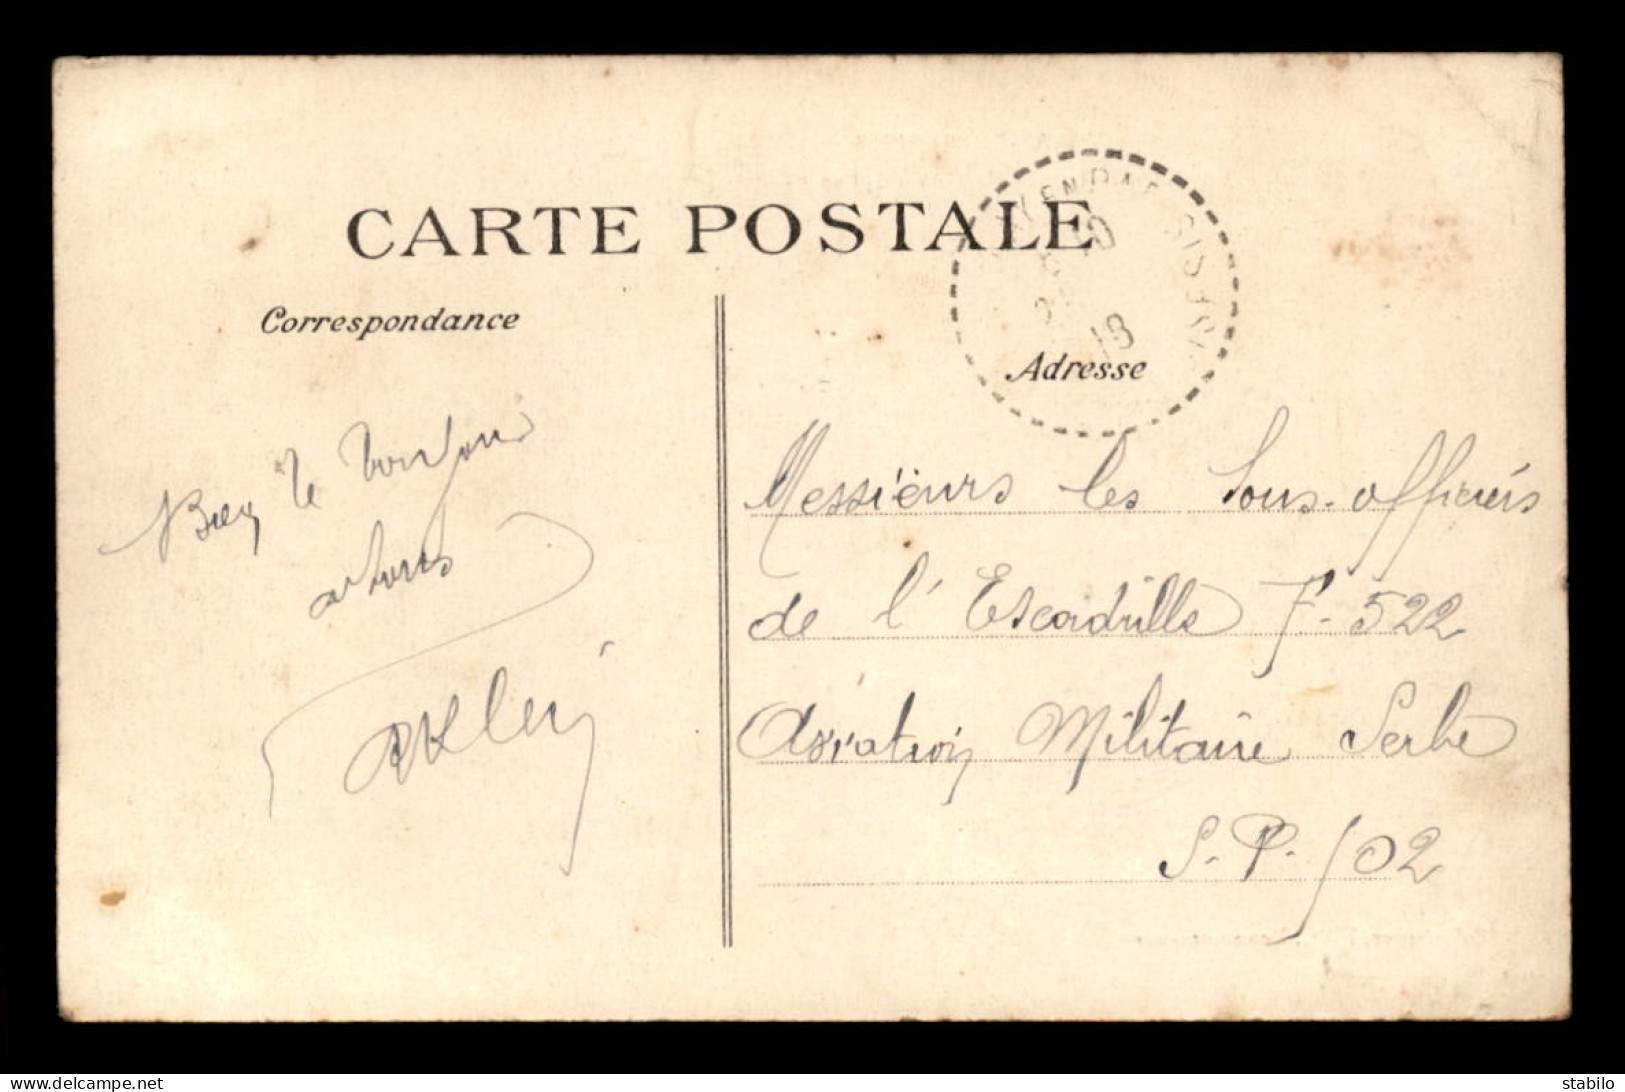 CARTE POSTALE
Correspondance
Bien le bonjour
a tous
Adresse
18
Messieurs les Sous-officiers
de l'Escadrille F-522
Aviation Militaire Serbe
S.P. 502
delcampe.net
stabilo